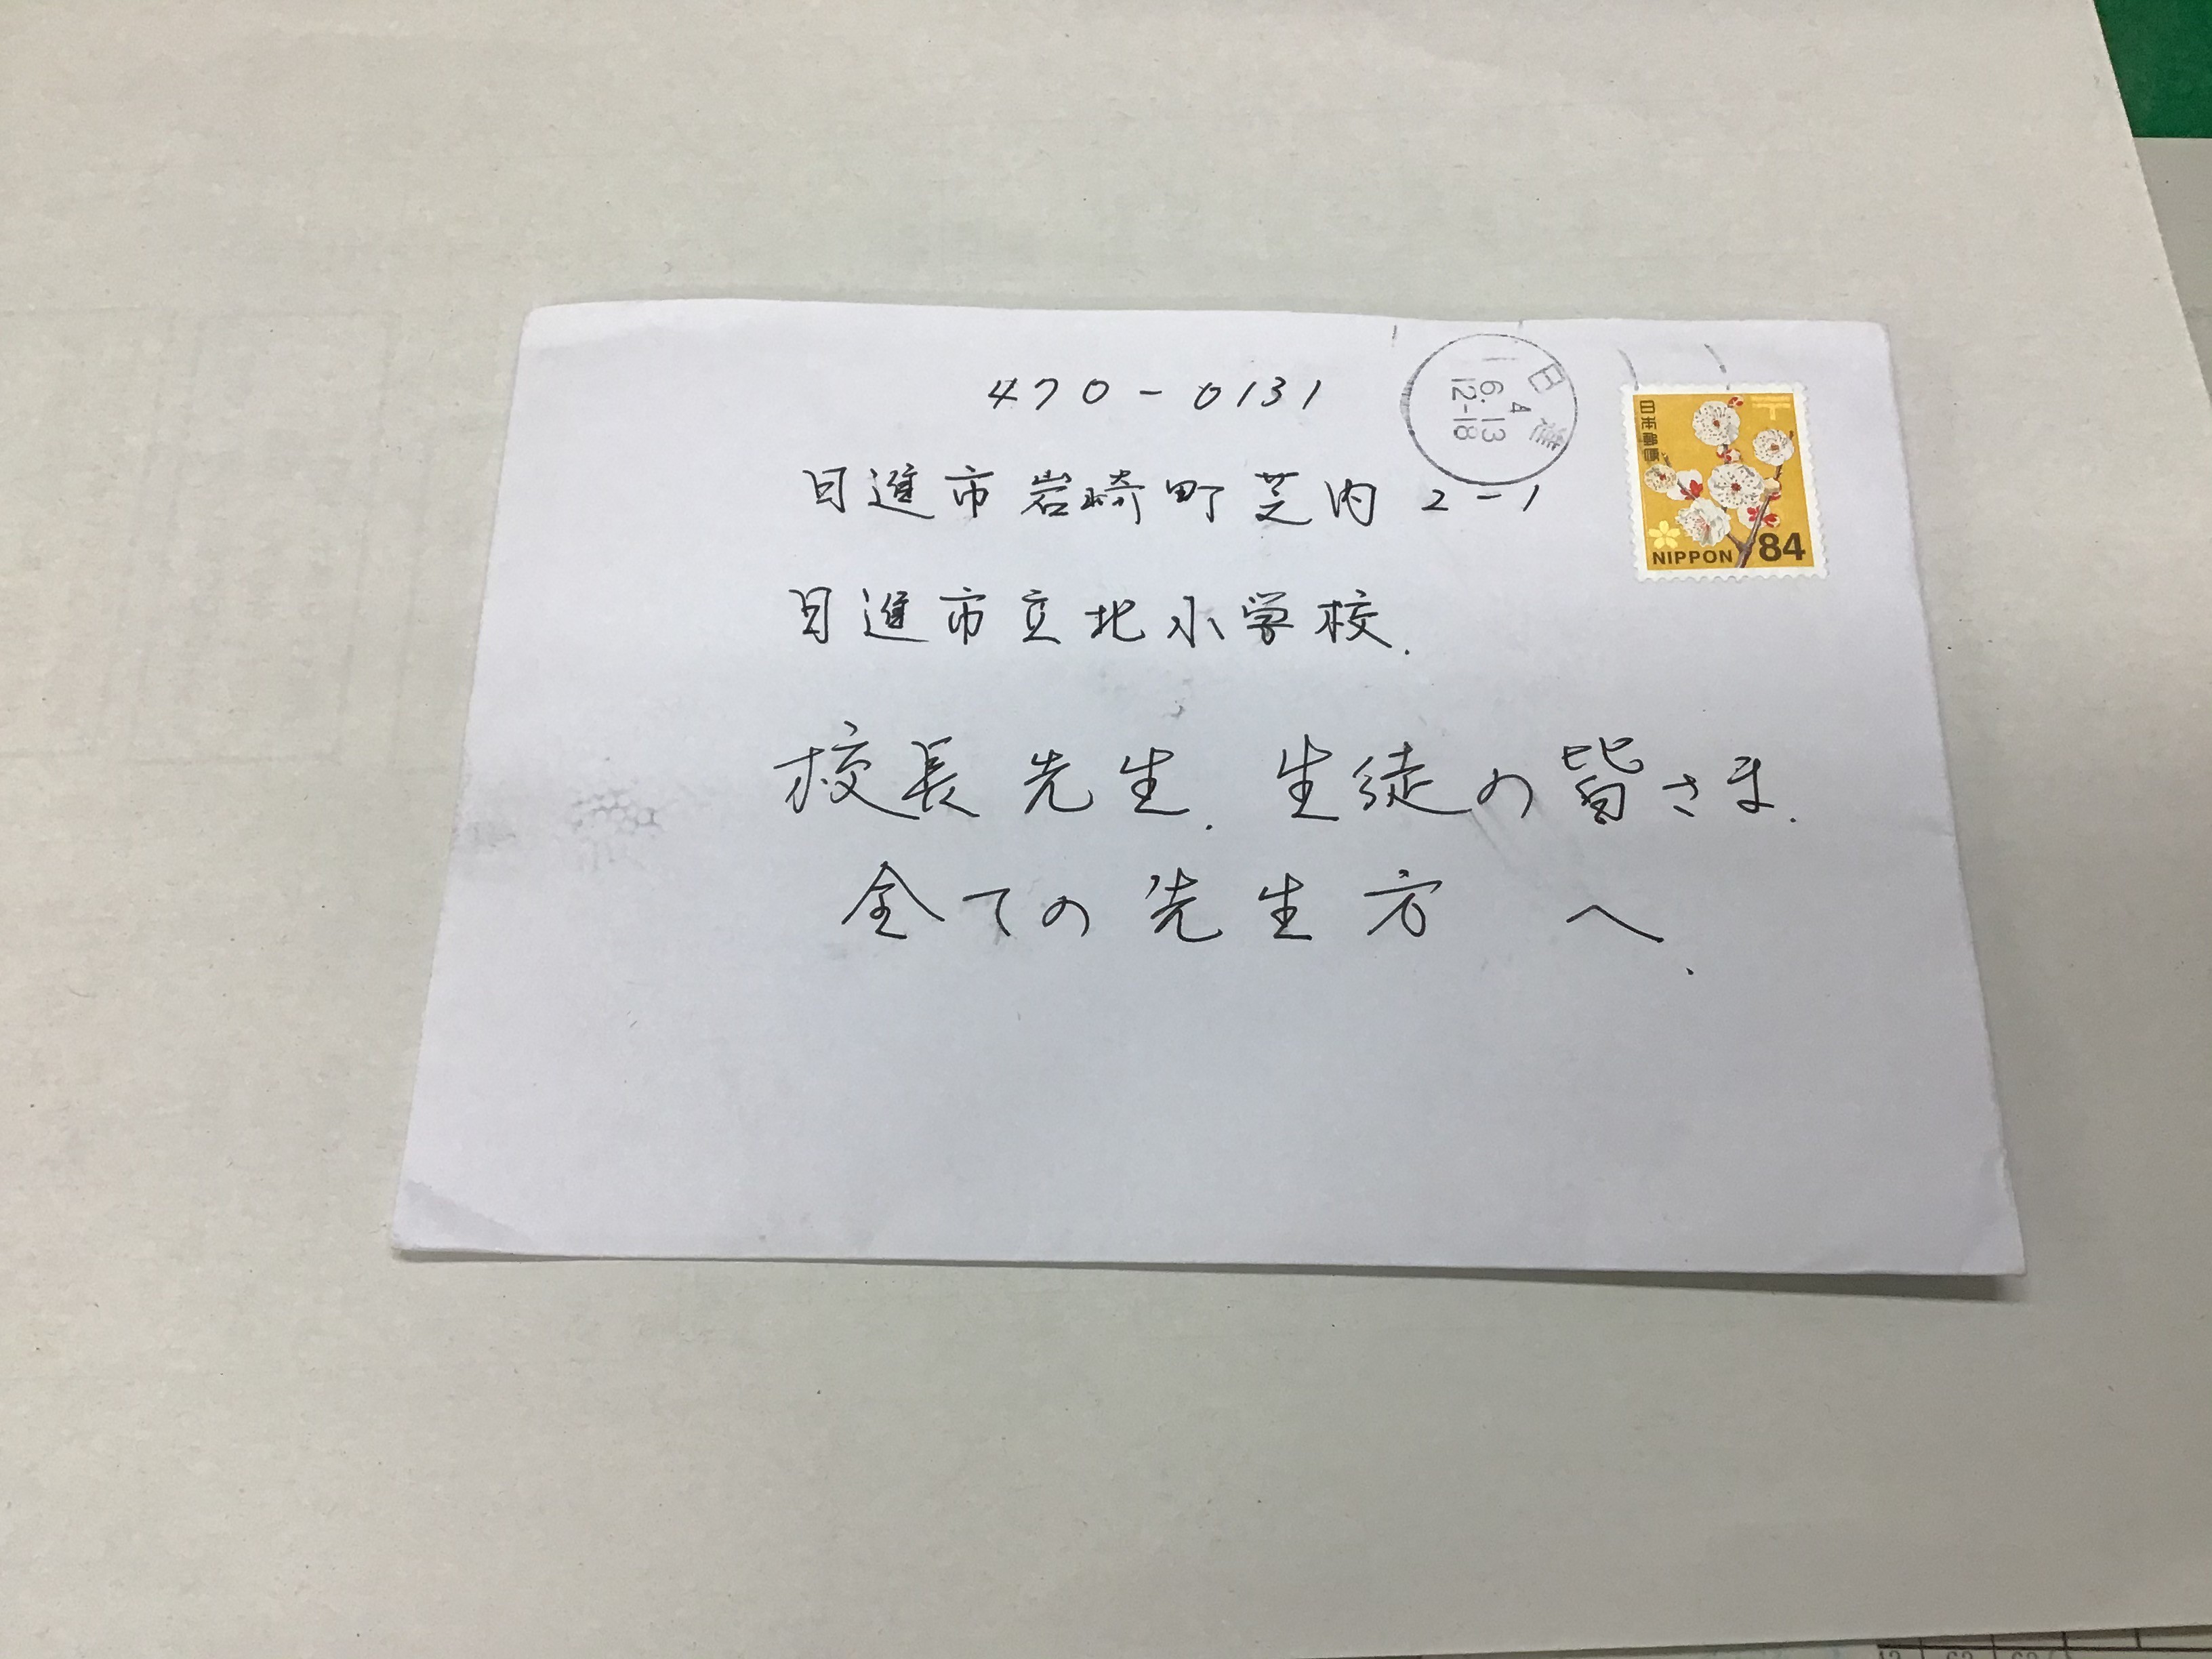 470-0131
日進市岩崎町芝内2-1
日進市立北小学校.
校長先生.生徒の皆さま.
全ての先生方 へ.
日進
4
6.13
12-18
日本郵便
〒
NIPPON 84